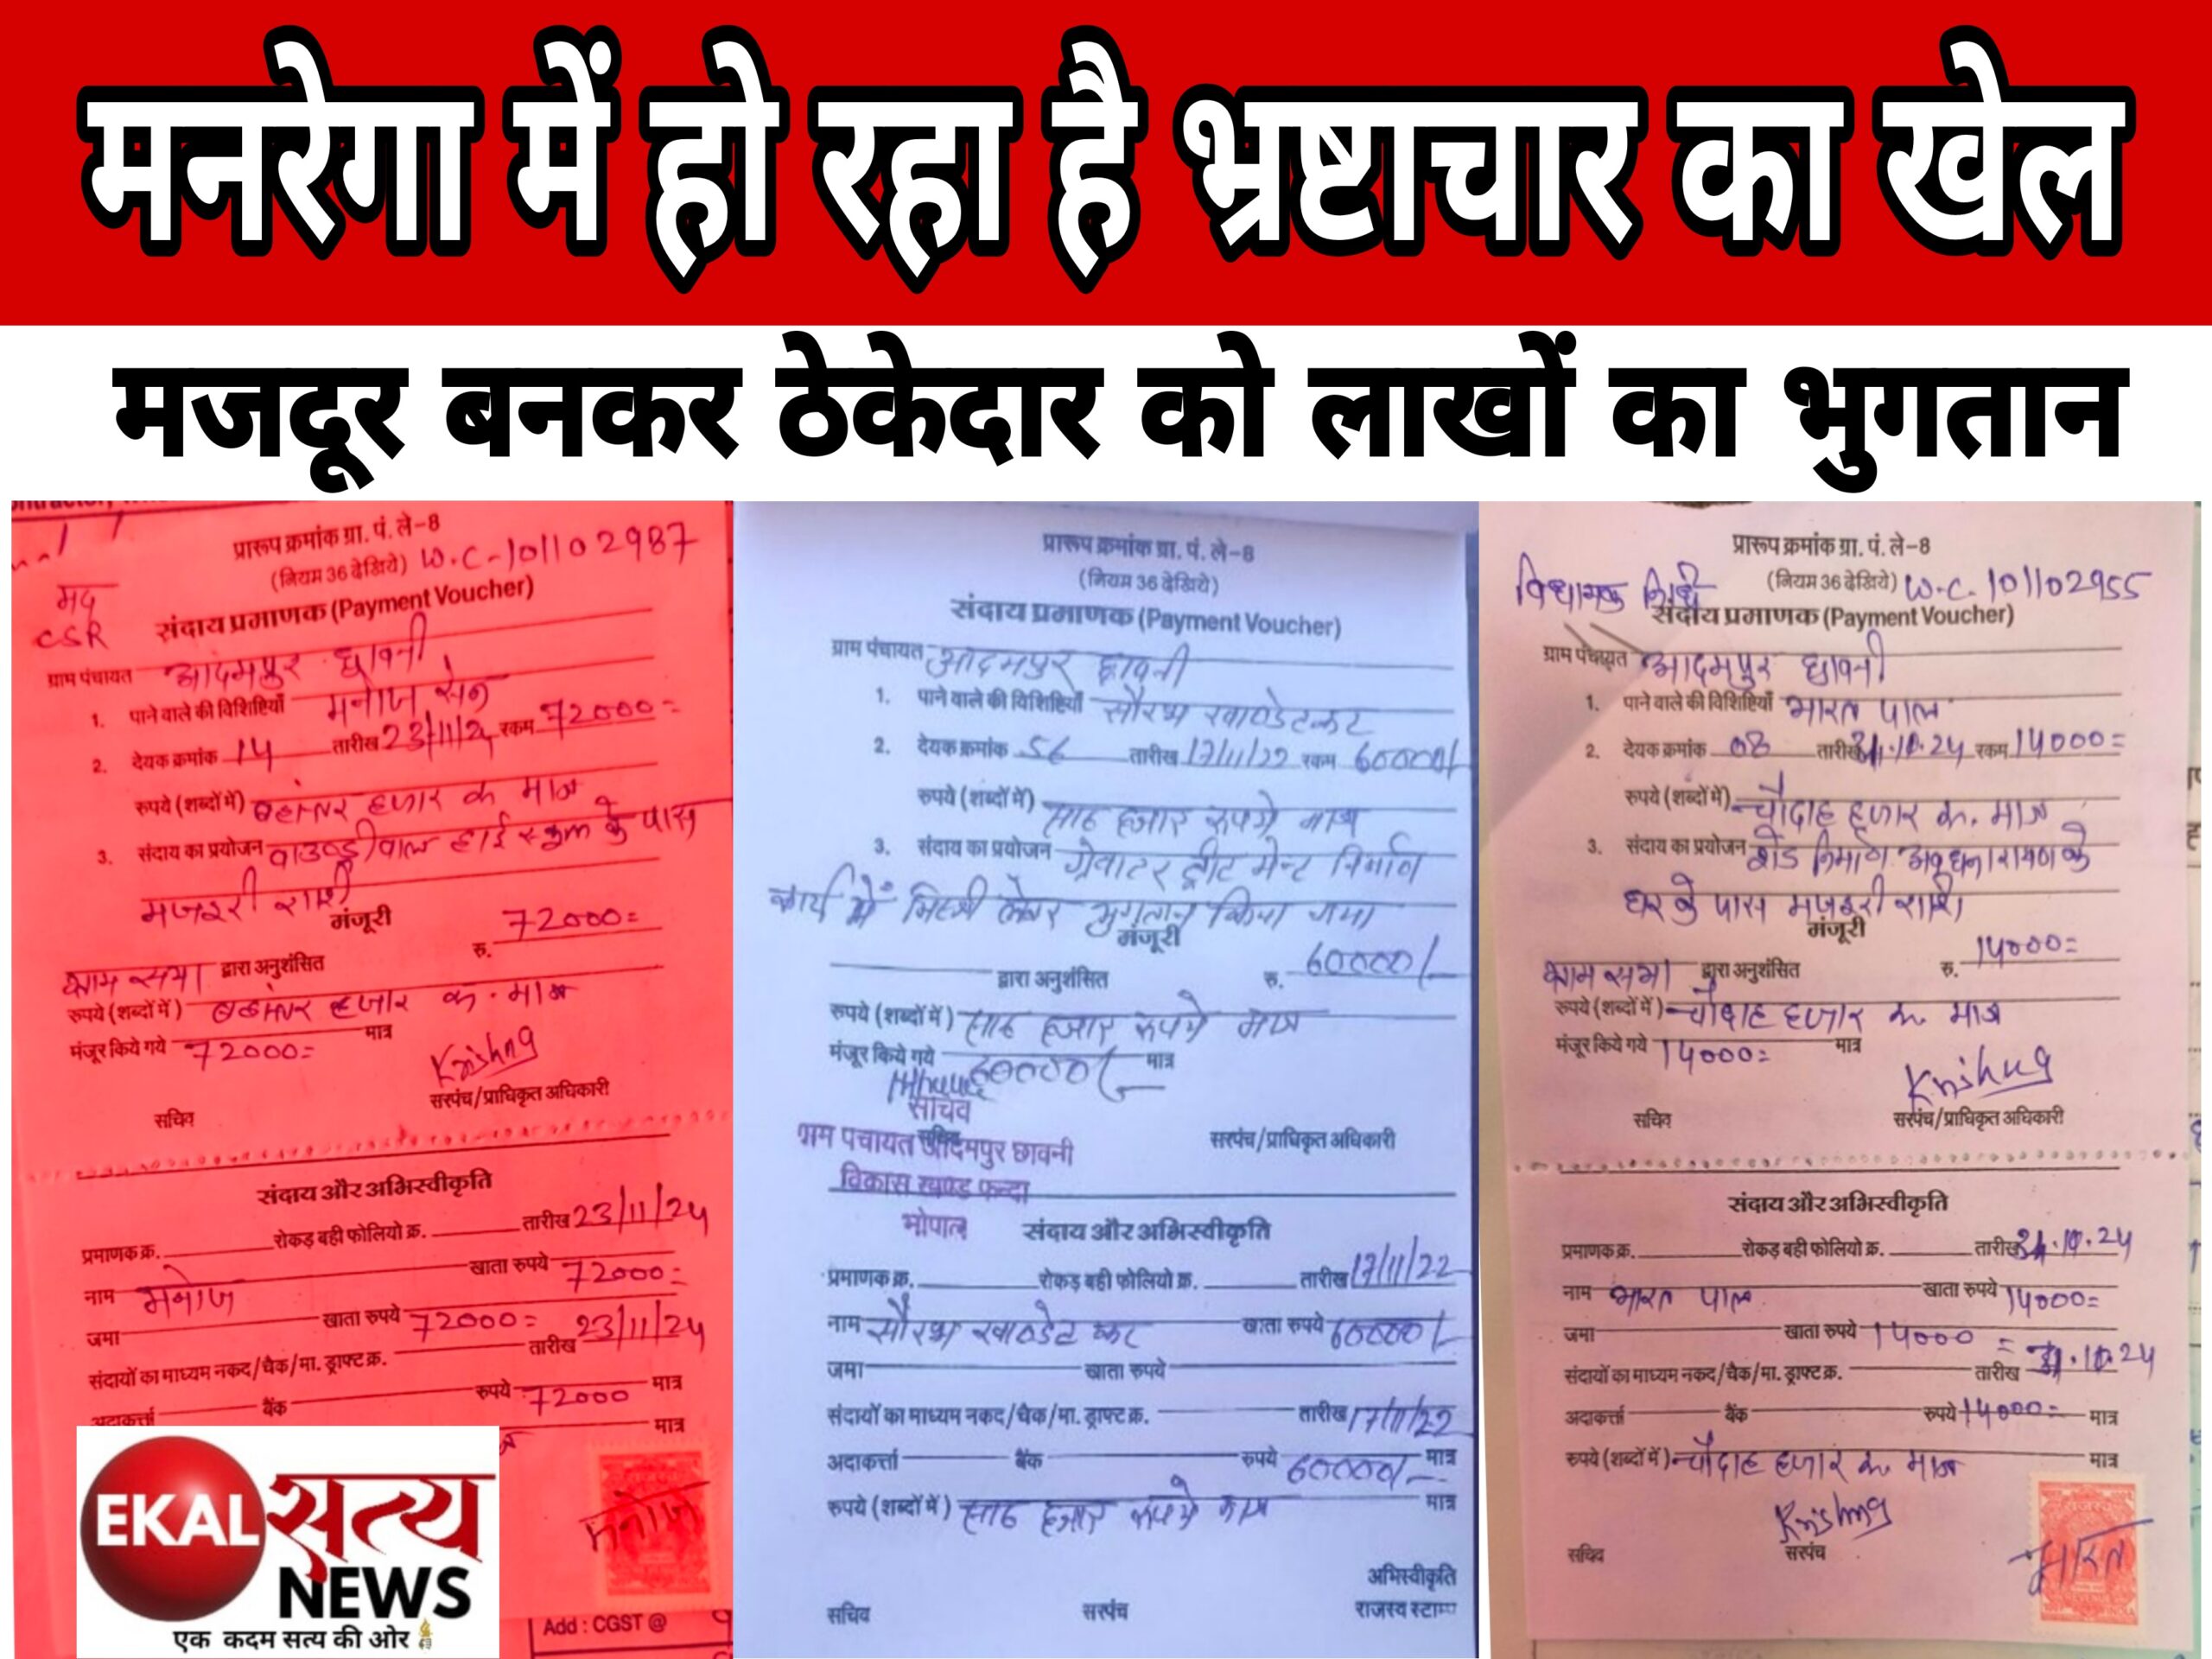 मनरेगा में हो रहा है भ्रष्टाचार का खेल
मजदूर बनकर ठेकेदार को लाखों का भुगतान
प्रारूप क्रमांक ग्रा. पं. ले-8
(नियम 36 देखिये) W.C-101102987
मद
CSR
संदाय प्रमाणक (Payment Voucher)
ग्राम पंचायत आदमपुर छावनी
1. पाने वाले की विशिष्टियाँ मनोज सेन
2. देयक क्रमांक 14 तारीख 23/11/24 रकम 72000=
रुपये (शब्दों में) बहत्तर हजार रू मात्र
3. संदाय का प्रयोजन वाउण्ड्रीवाल हाई स्कूल के पास
मजदूरी राशी
मंजूरी
रु. 72000=
ग्राम सभा द्वारा अनुशंसित
रुपये (शब्दों में) बहत्तर हजार रू. मात्र
मंजूर किये गये 72000= मात्र
Krishna
सचिव सरपंच/प्राधिकृत अधिकारी
संदाय और अभिस्वीकृति
प्रमाणक क्र. रोकड़ बही फोलियो क्र. तारीख 23/11/24
नाम मनोज खाता रुपये 72000=
जमा खाता रुपये 72000=
संदायों का माध्यम नकद/चैक/मा. ड्राफ्ट क्र. तारीख 23/11/24
अदाकर्त्ता बैंक रुपये 72000 मात्र
मात्र
मनोज
Add : CGST @
EKAL सत्य
NEWS
एक कदम सत्य की ओर
प्रारूप क्रमांक ग्रा. पं. ले-8
(नियम 36 देखिये)
संदाय प्रमाणक (Payment Voucher)
ग्राम पंचायत आदमपुर छावनी
1. पाने वाले की विशिष्टियाँ सौरभ खाण्डेटकर
2. देयक क्रमांक 56 तारीख 17/11/22 रकम 60000/
रुपये (शब्दों में) साठ हजार रूपये मात्र
3. संदाय का प्रयोजन ग्रेवाटर ट्रीटमेन्ट निर्माण
कार्य में मिस्त्री लेबर भुगतान किया गया
मंजूरी
द्वारा अनुशंसित रु. 60000/-
रुपये (शब्दों में) साठ हजार रूपये मात्र
मंजूर किये गये 60000/- मात्र
सचिव
सचिव सरपंच/प्राधिकृत अधिकारी
ग्राम पंचायत आदमपुर छावनी
विकास खण्ड फन्दा
भोपाल
संदाय और अभिस्वीकृति
प्रमाणक क्र. रोकड़ बही फोलियो क्र. तारीख 17/11/22
नाम सौरभ खाण्डेटकर खाता रुपये 60000/-
जमा खाता रुपये
संदायों का माध्यम नकद/चैक/मा. ड्राफ्ट क्र. तारीख 17/11/22
अदाकर्त्ता बैंक रुपये 60000/- मात्र
रुपये (शब्दों में) साठ हजार रूपये मात्र मात्र
अभिस्वीकृति
सचिव सरपंच राजस्व स्टाम्प
प्रारूप क्रमांक ग्रा. पं. ले-8
विधायक निधी (नियम 36 देखिये) W.C. 101102955
संदाय प्रमाणक (Payment Voucher)
ग्राम पंचायत आदमपुर छावनी
1. पाने वाले की विशिष्टियाँ भारत पाल
2. देयक क्रमांक 08 तारीख 31.10.24 रकम 14000=
रुपये (शब्दों में) चौदाह हजार रू. मात्र
3. संदाय का प्रयोजन शेड निर्माण के
घर के पास मजदूरी राशी
मंजूरी
रु. 14000=
ग्राम सभा द्वारा अनुशंसित
रुपये (शब्दों में) चौदाह हजार रू मात्र
मंजूर किये गये 14000= मात्र
Krishna
सचिव सरपंच/प्राधिकृत अधिकारी
संदाय और अभिस्वीकृति
प्रमाणक क्र. रोकड़ बही फोलियो क्र. तारीख 31.10.24
नाम भारत पाल खाता रुपये 14000=
जमा खाता रुपये 14000=
संदायों का माध्यम नकद/चैक/मा. ड्राफ्ट क्र. तारीख 31.10.24
अदाकर्त्ता बैंक रुपये 14000= मात्र
रुपये (शब्दों में) चौदाह हजार रू मात्र मात्र
Krishna
सचिव सरपंच
भारत